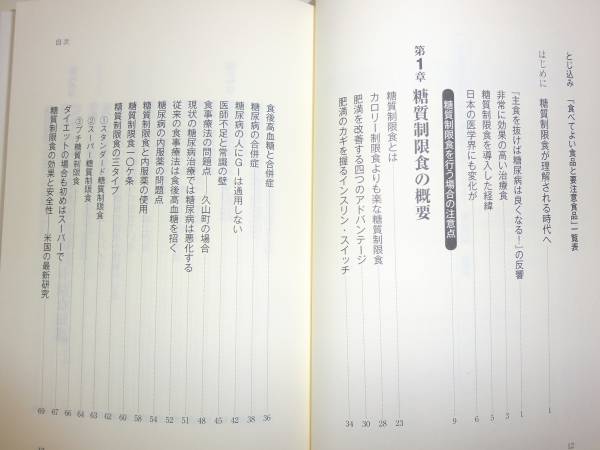 とじ込み 「食べてよい食品と要注意食品」一覧表
はじめに 糖質制限食が理解される時代へ 1
『主食を抜けば糖尿病は良くなる!』の反響 1
非常に効果の高い治療食 3
糖質制限食を導入した経緯 5
日本の医学界にも変化が 6
糖質制限食を行う場合の注意点 9
第1章 糖質制限食の概要
糖質制限食とは 23
カロリー制限食よりも楽な糖質制限食 28
肥満を改善する四つのアドバンテージ 30
肥満のカギを握るインスリン・スイッチ 34
12
目次
食後高血糖と合併症 36
糖尿病の合併症 38
糖尿病の人にGIは通用しない 42
医師不足と常識の壁 45
食事療法の問題点——久山町の場合 48
現状の糖尿病治療では糖尿病は悪化する 51
従来の食事療法は食後高血糖を招く 52
糖尿病の内服薬の問題点 54
糖質制限食と内服薬の使用 58
糖質制限食一〇ケ条 60
糖質制限食の三タイプ 62
①スタンダード糖質制限食 63
②スーパー糖質制限食 64
③プチ糖質制限食 64
ダイエットの場合も初めはスーパーで 66
糖質制限食の効果と安全性——米国の最新研究 67
69